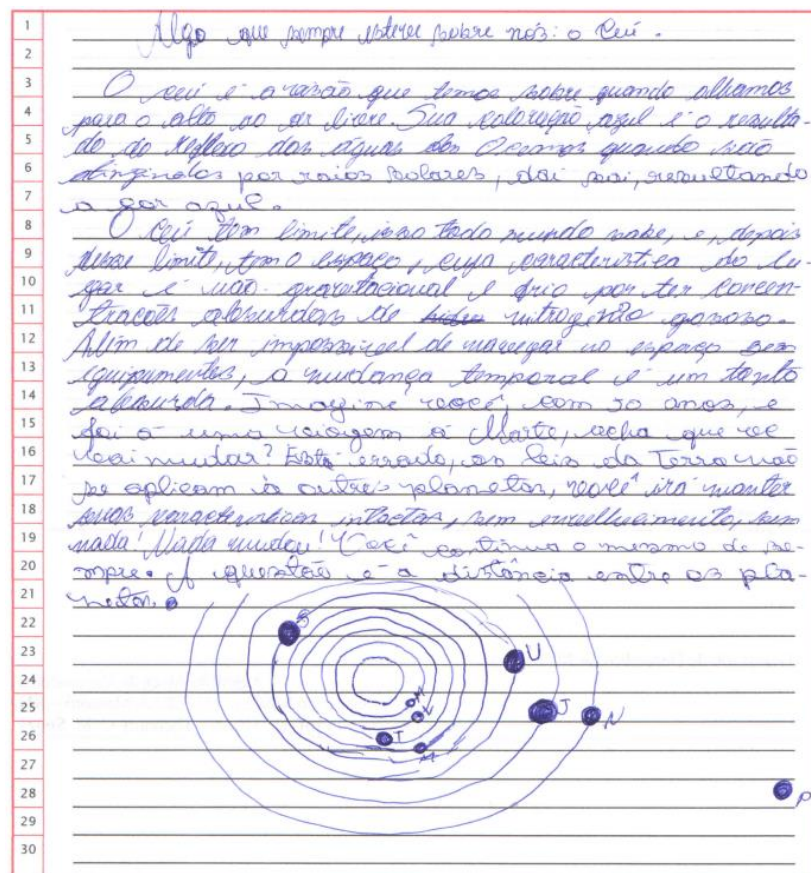 1
Algo que sempre esteve sobre nós: o Céu.
2
3
O céu é a visão que temos sobre quando olhamos
4
para o alto no ar livre. Sua coloração azul é o resulta-
5
do do reflexo das águas dos Oceanos quando são
6
atingindos por raios solares, daí sai, resultando
7
a cor azul.
8
O céu tem limite, isso todo mundo sabe, e, depois
9
desse limite, tem o espaço, cuja característica do lu-
10
gar é não gravitacional e frio por ter concen-
11
trações absurdas de nitrogênio gasoso.
12
Além de ser impossível de navegar no espaço sem
13
equipamentos, a mudança temporal é um tanto
14
absurda. Imagine você, com 50 anos, e
15
foi à uma viagem à Marte, acha que vc
16
vai mudar? Está errado, as leis da Terra não
17
se aplicam à outros planetas, você irá manter
18
suas características intactas, sem envelhecimento, sem
19
nada! Nada mudou! Você continua o mesmo de se-
20
mpre. A questão é a distância entre os pla-
21
netas.
22
S
23
U
24
25
M
V
J
N
26
T
M
27
28
P
29
30